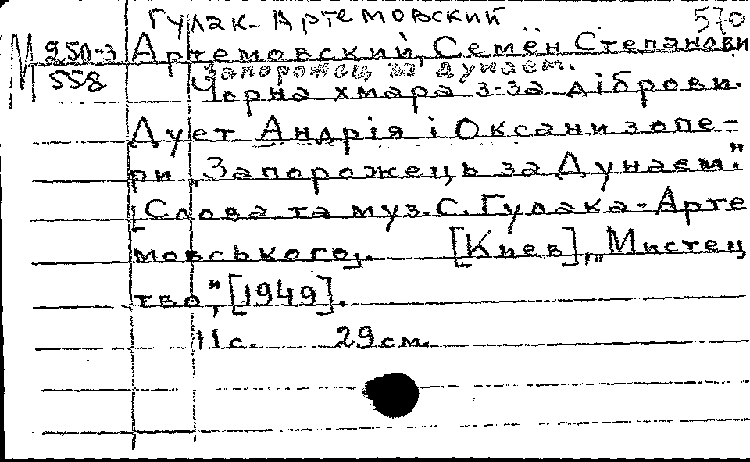 Гулак-Артемовский 570
М 250-3 Артемовский, Семён Степанови
558 Запорожец за Дунаем.
Чорна хмара з-за діброви.
Дует Андрія і Оксани з опе-
ри „Запорожець за Дунаєм".
[Слова та муз. С. Гулака-Арте
мовського]. [Киев], „Мистец
тво", [1949].
11 с. 29 см.